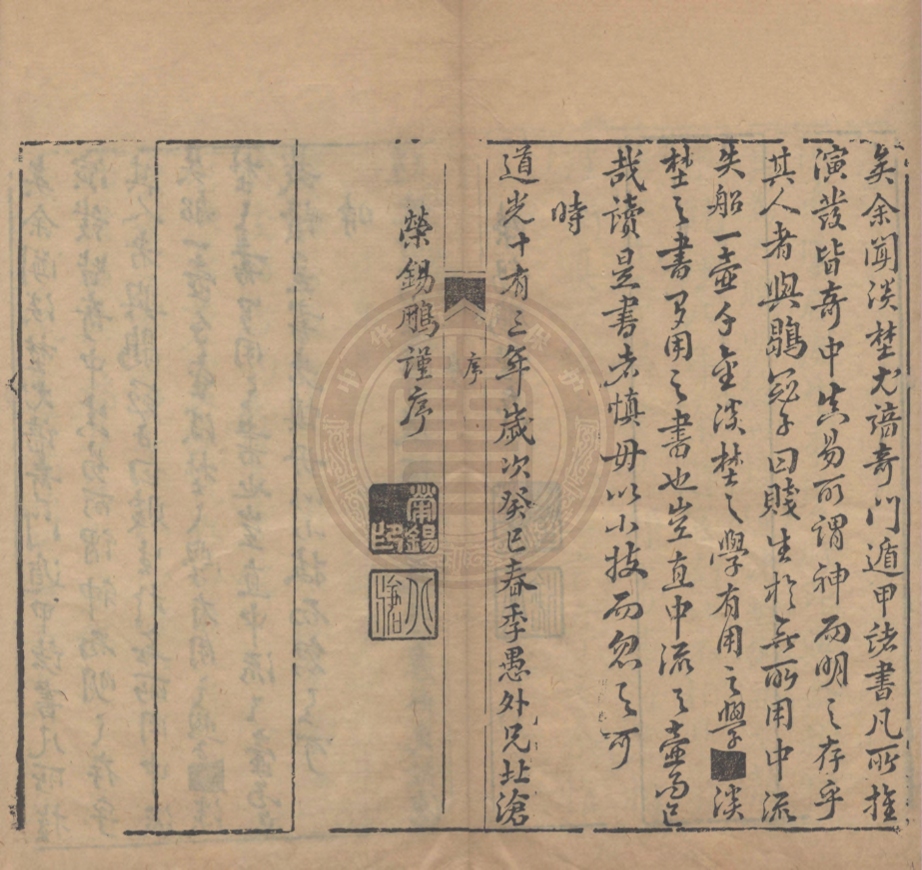 矣余聞淡埜尤諳奇門遁甲諸書凡所推
演發皆奇中其易所謂神而明之存乎
其人者與鶡冠子曰賤生於無所用中流
失船一壺千金淡埜之學有用之學■淡
埜之書多用之書也豈直中流之壺而已
哉讀是書者慎毋以小技而忽之可
時
道光十有三年歲次癸巳春季愚外兄北滄
榮錫鵬謹序
序